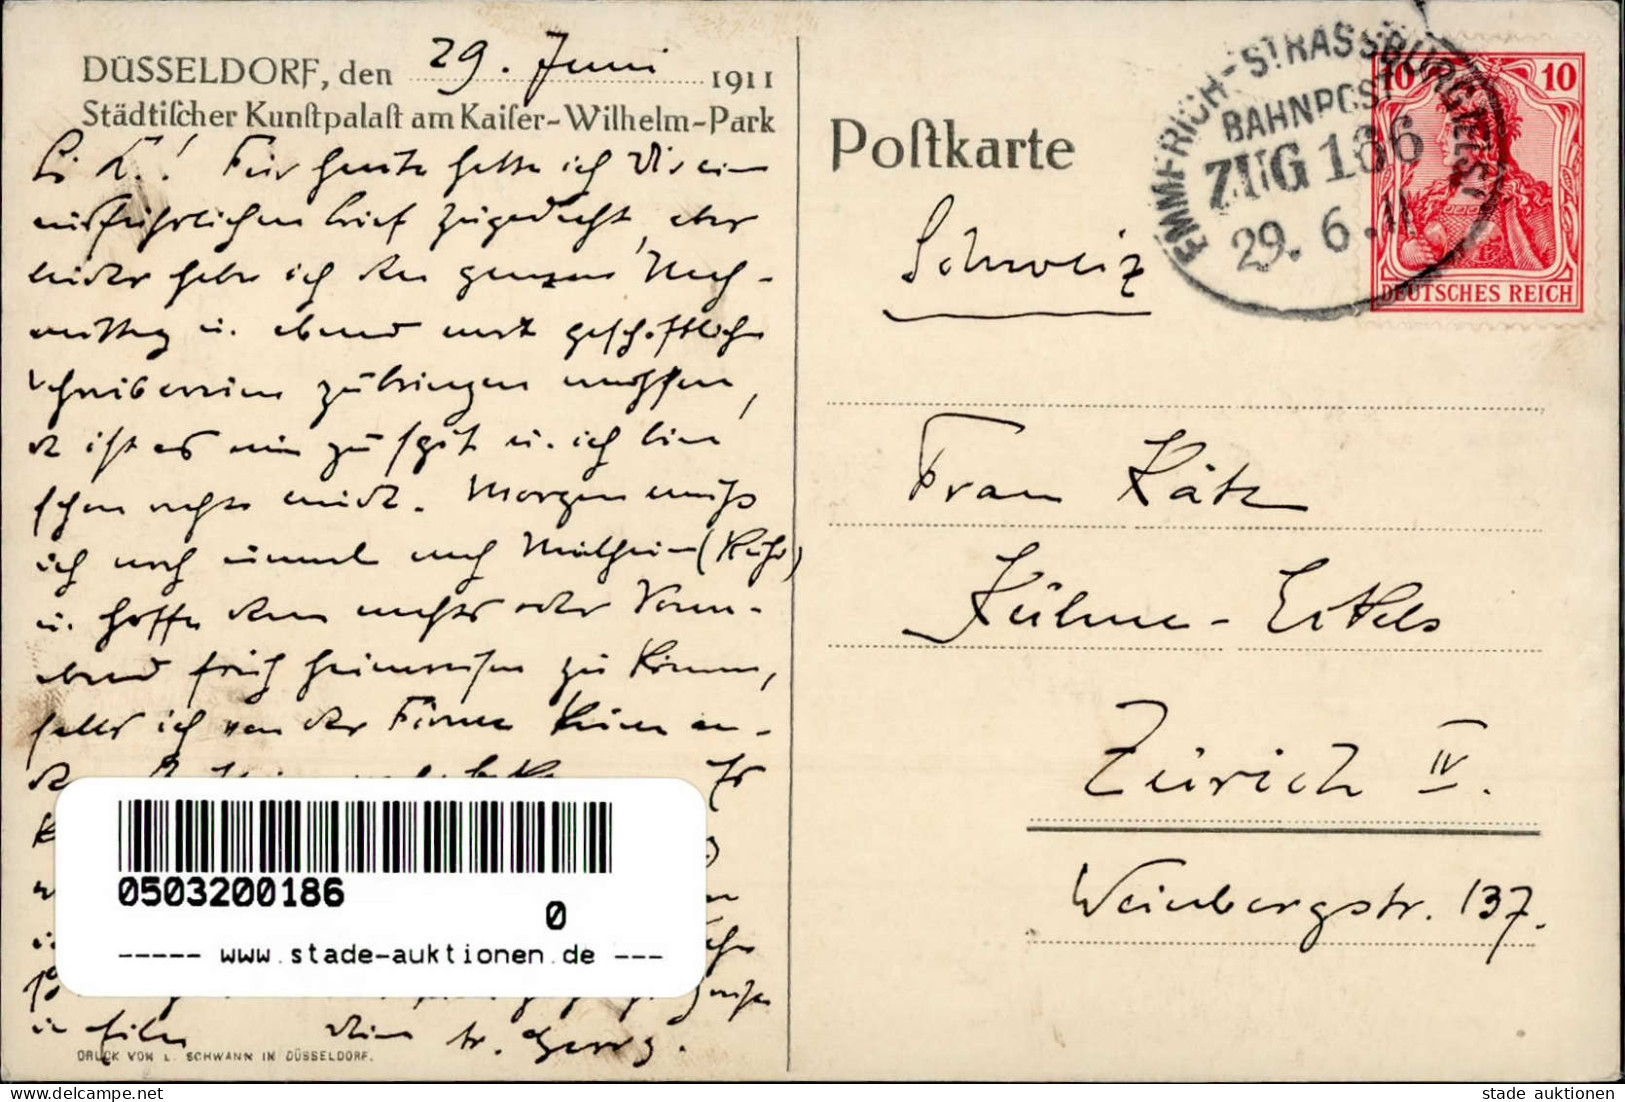 DÜSSELDORF, den 29. Juni 1911
Städtiſcher Kunſtpalaſt am Kaiſer-Wilhelm-Park
L. K.! Für heute hatte ich Dir ein
ausführlichen Brief zugedacht, aber
leider habe ich den ganzen Nach-
mittag u. abend mit geschäftlichen
Schreibereien zubringen müssen,
ist es mir zu spät u. ich bin
schon recht müde. Morgen muß
ich noch einmal nach Mülheim (Ruhr)
u. hoffe dann nachts oder Sonn-
abend früh heimreisen zu können,
falls ich von der Firma keine an-
in Eile Dein tr. Georg.
DRUCK VON L. SCHWANN IN DÜSSELDORF.
Poſtkarte
EMMERICH-STRASSBURG (ELS)
BAHNPOST
ZUG 166
29. 6. 11
10 10
DEUTSCHES REICH
Schweiz
Frau Käte
Kühne-Eckels
Zürich IV.
Weinbergstr. 137.
0503200186
0
----- www.stade-auktionen.de ---
www.delcampe.net
stade auktionen